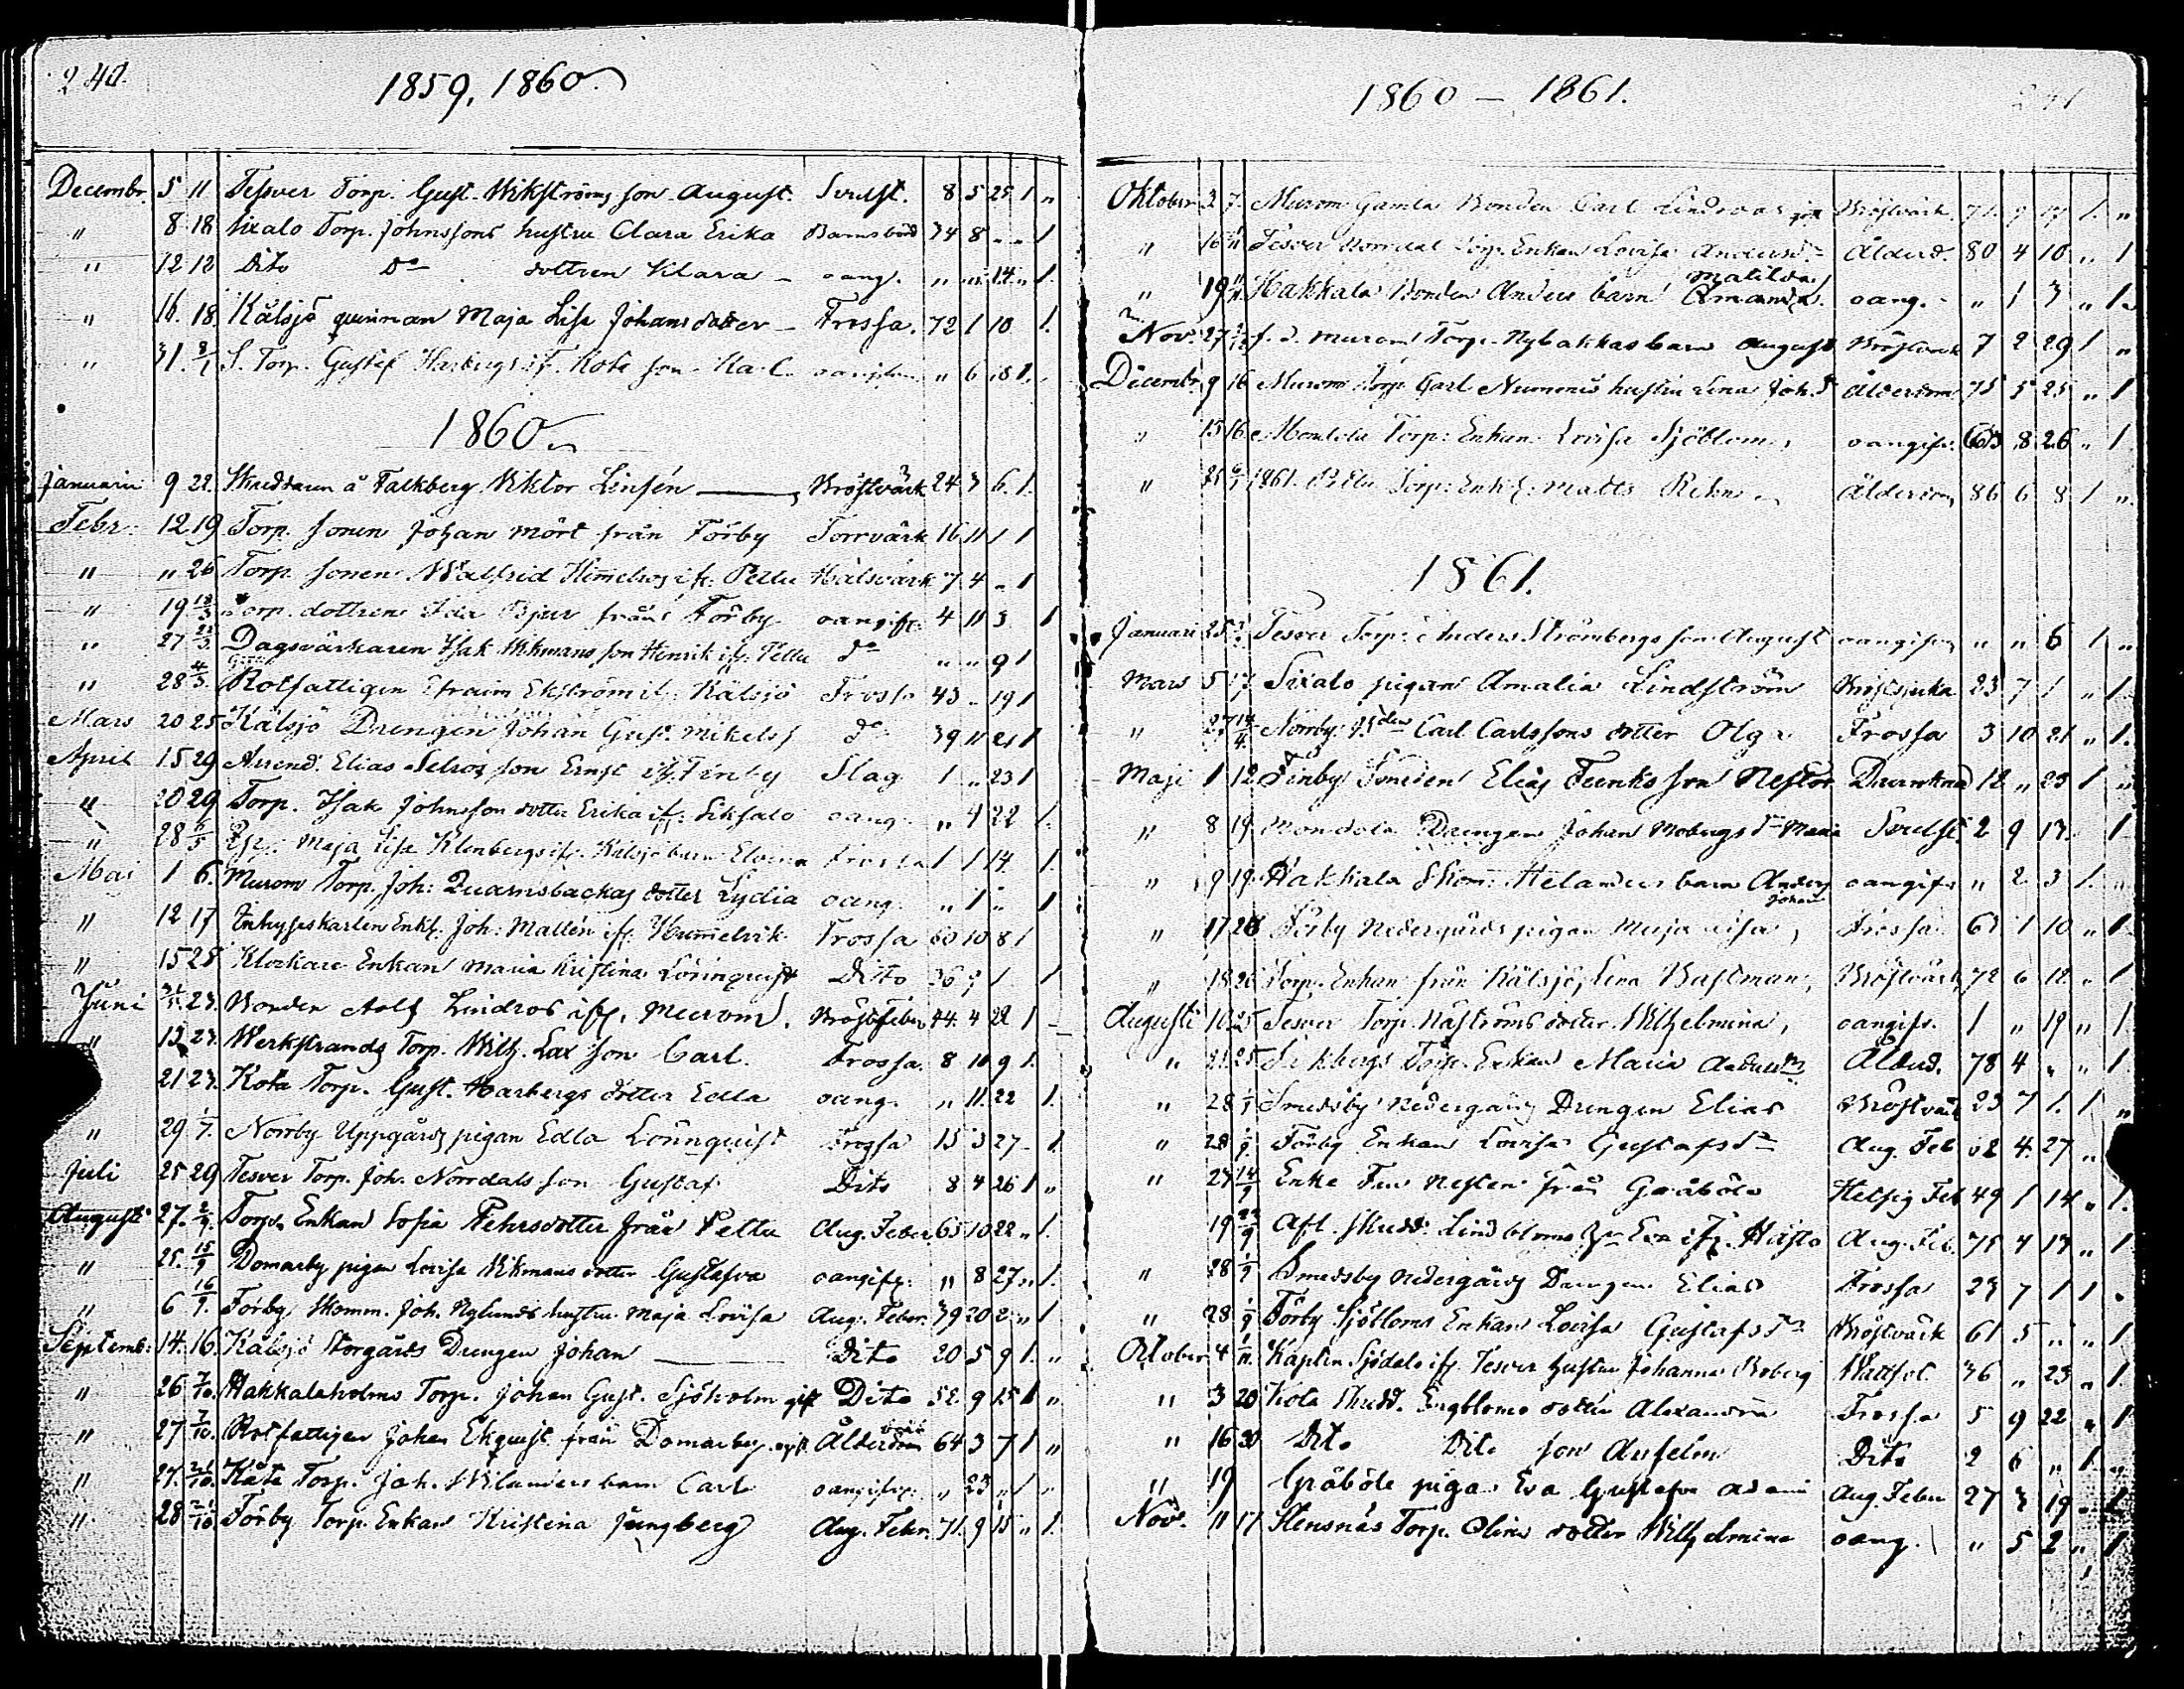 240.
1859, 1860
Decembr. 5 11 Tesver Torp. Gust. Wikströms son August. Svulst. 8 5 25 1 "
" 8 18 Sixalo Torp. Johnssons hustru Clara Erika Barnsbörd 34 8 " " 1
" 12 12 Dito Do dottren Klara oang. " " 14 " 1.
" 16. 18. Kålsjö quinnan Maja Lisa Johansdotter Frossa. 72 1 10 1.
" 31. 8/1 S. Torp. Gustaf Harbergs if. Kota son Karl " 6 1.
1860
Januarii 9 22. Skreddaren å Falkberg Viktor Linsén Bröstvärk 24 3 6. 1.
Febr. 12 19 Torp. sonen Johan Mört från Förby Torrvärk 16 11 1 1
" " 26 Torp. sonen Walfrid Himmelroos if. Pellu Halsvärk 7 4 " 1
" 19 18/3 Torp. dottren Ida Bjur från Förby oangift. 4 11 3 1
" 27 Dagsvärkaren Isak Wikmans son Henrik if. Pellu do " " 9 1
" 28 4/3. Rotfattigen Efraim Ekström if. Kålsjö Frossa 43 " 19 1
Mars 20 25 Kålsjö Drengen Johan Gust. Mikelss. do 39 11 21 1
April 15 29 Arrend. Elias Selroos son Ernst if. Finby Slag 1 " 23 1
" 20 29 Torp. Isak Johnsson dotter Erika if. Siksalo oang. " 4 22 1.
" 28 6/5 Maja Lisa Klenbergs if. Kålsjö barn Frossa 1 1 14. 1.
Mai 1 6. Murom Torp. Joh: Quarnsbackas dotter Lydia oang. " 1 " 1
" 12 17 Inhyseskarlen Enkl. Joh: Mallén if. Himmelvik Frossa 60 10 8 1
" 15 28 Klockare Enkan Maria Kristina Lönnquist Dito 36 1 1
Juni 23. Bonden Adolf Lindroos if. Murom. Bröstfeber 44. 4 22 1
" 13 23. Werkstrands Torp. Wilh. Lax son Carl. Frossa. 8 10 9 1.
21 23. Kota Torp. Gust. Harbergs dotter Edla oang. " 11. 22 1.
" 29 1/7. Norrby Uppgårds pigan Edla Lönnquist Frossa 15 3 27 1.
Juli 25 29 Tesver Torp. Joh. Norrdals son Gustaf Dito 8 4 26 1 "
Augusti 27. 2/9. Torp. Enkan Sofia Pehrsdotter från Pellu Aug. Feber. 65 10 22 " 1.
" 25. 15/9 Domarby pigan Lovisa Wikmans dotter Gustafva oangift. " 8 27 " 1.
" 6 16/9. Förby Skomm. Joh. Nylunds hustru Maja Lovisa Aug. Feber. 39 20 2 " 1
Septemb. 14. 16. Kålsjö Storgårds Drengen Johan Dito 20 5 9 1. "
" 26 7/10. Hakkalaholms Torp. Johan Gust. Sjöholm gift Dito 52. 9 15 1 "
" 27 7/10. Rotfattigen Johan Ekquist från Domarby Ålderdom 64 3 7 1 "
" 27. 21/10. Kåta Torp. Joh. Wilanders barn Carl oangifv. " 23 " 1 "
" 28 21/10 Förby Torp. Enkan Kristina Jungberg Aug. Feber. 71. 9 15 " 1.
1860 — 1861.
241
Oktober 2 7. Murom Gamla Bonden Carl Lindroos gift Bröstvärk. 71. 9 17 1. "
" 16 Tesver Norrdal Torp. Enkan Lovisa Andersd. Ålderd. 80 4 10 " 1
Matilda
" 19 Hakkala Bonden Anders barn Amanda. oang. " 1 3 " 1.
Nov. 27 f. d. Murom Torp. Nybakkas barn August Bröstvärk 7 2 29 1 "
Decembr. 9 16 Murom Torp. Carl Nummis hustru Lena Joh. d. Ålderdom 75 5 25 " 1
" 15 16 Mondola Torp. Enkan Lovisa Sjöblom, oangifv. 8 26 " 1.
" 25 6/1 1861. Torp: Enkl: Matts Rehn Ålderdom, 86 6 8 1 "
1861.
Januari 25 Tesver Torp. Anders Strömbergs son August oangifven " " 6 1 "
Mars 5 17 Sixalo pigan Amalia Lindström Bröstsjuka 23 7 1 " 1
" 27 14/4. Norrby Bden Carl Carlssons dotter Olga Frossa 3 10 21 " 1.
Maji 1 12 Finby Smeden Elias Funks son Nestor Drunknad 12 " 23 1 "
" 8 19 Mondola Drengen Johan Mobergs dr Maria Svulst 2 9 17. 1
" 9 19. Hakkala Skom. Helanders barn Anders oangifv. " 2 3 1. "
Johan
" 17 26 Förby Nedergårds pigan Maja Lisa, Frossa. 67 1 10 " 1
" 18 26 Torp. Enkan från Kålsjö, Lena Bastman, Bröstvärk 72 6 12 " 1
Augusti 10 25 Tesver Torp. Näströms dotter Wilhelmina, oangifv. 1 " 19 " 1
" 21. 25 Torp. Enkan Maria Andersd. Ålderd. 78 4 " " 1
" 28 1/9 Smedsby Nedergårds Drengen Elias Bröstvärk 23 7 1. 1 "
" 28 1/9. Förby Enkan Lovisa Gustafsdr Aug. Feb 62 4. 27 "
" 27 14/9 Enke Fru Nesten från Gråböle Hetsig Feb 49 1 14 " 1.
19 22/9 Aft. Skredd. Lindbloms Eva if. Haisto Aug. Feb. 75 4 17 " 1
" 28 1/9 Smedsby Nedergårds Drengen Elias Frossa 23 7 1 1 "
" 28 1/9 Förby Sjöbloms Enkan Lovisa Gustafsdr Bröstvärk 61 5 " " 1
October 4 1/11. Kapten Sjödals if. Tesver hustru Johanna Broberg Wattsot. 36 " 23 " 1.
" 3 20 Kota Skredd. Engbloms dotter Alexandra Frossa 5 9 22 " 1
" 16 30 Dito Dito son Anselm Dito 2 6 " 1 "
" 19 Gråböle piga Eva Gustafva Aug. Feber 27 3 19 " 1
Nov. 11 17 Stensnäs Torp. Olins dotter Wilhelmina oang. " 5 2 " 1